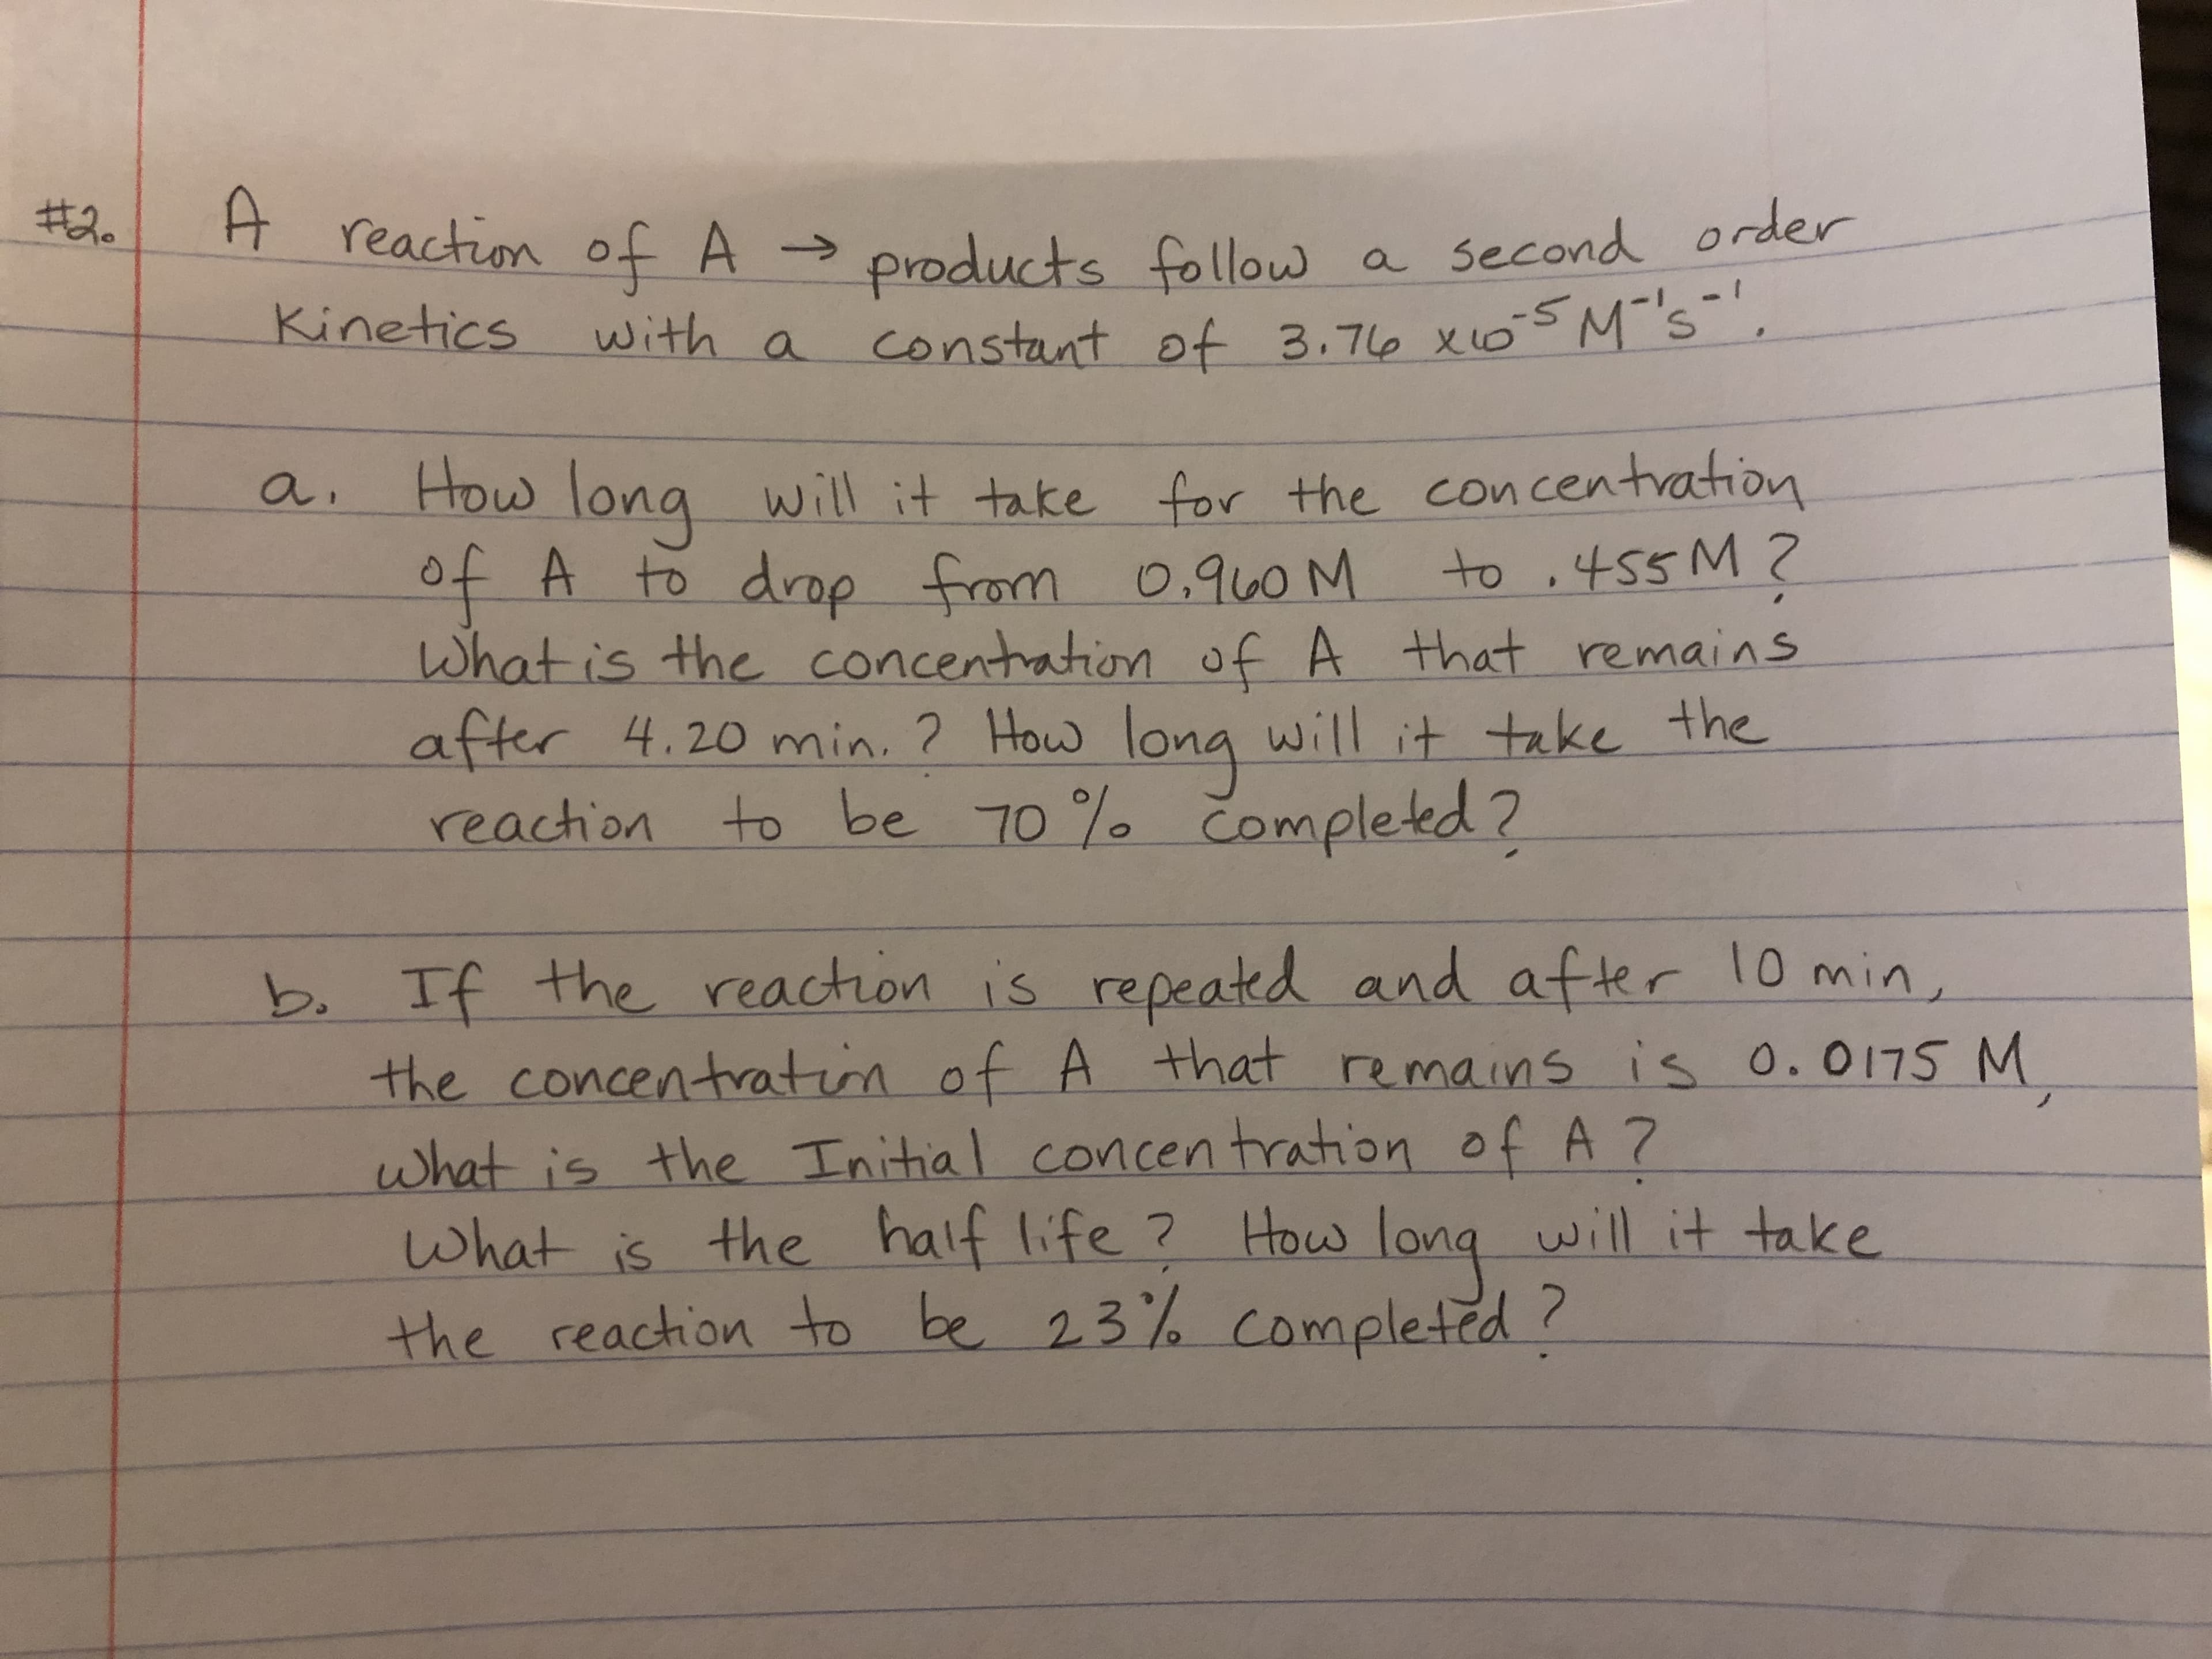 #2. A reaction of A → products follow a second order
Kinetics with a constant of 3.76 x10⁻⁵ M⁻¹s⁻¹.
a. How long will it take for the concentration
of A to drop from 0.960 M to .455 M?
What is the concentration of A that remains
after 4.20 min.? How long will it take the
reaction to be 70% completed?
b. If the reaction is repeated and after 10 min,
the concentration of A that remains is 0.0175 M,
what is the Initial concentration of A?
What is the half life? How long will it take
the reaction to be 23% completed?